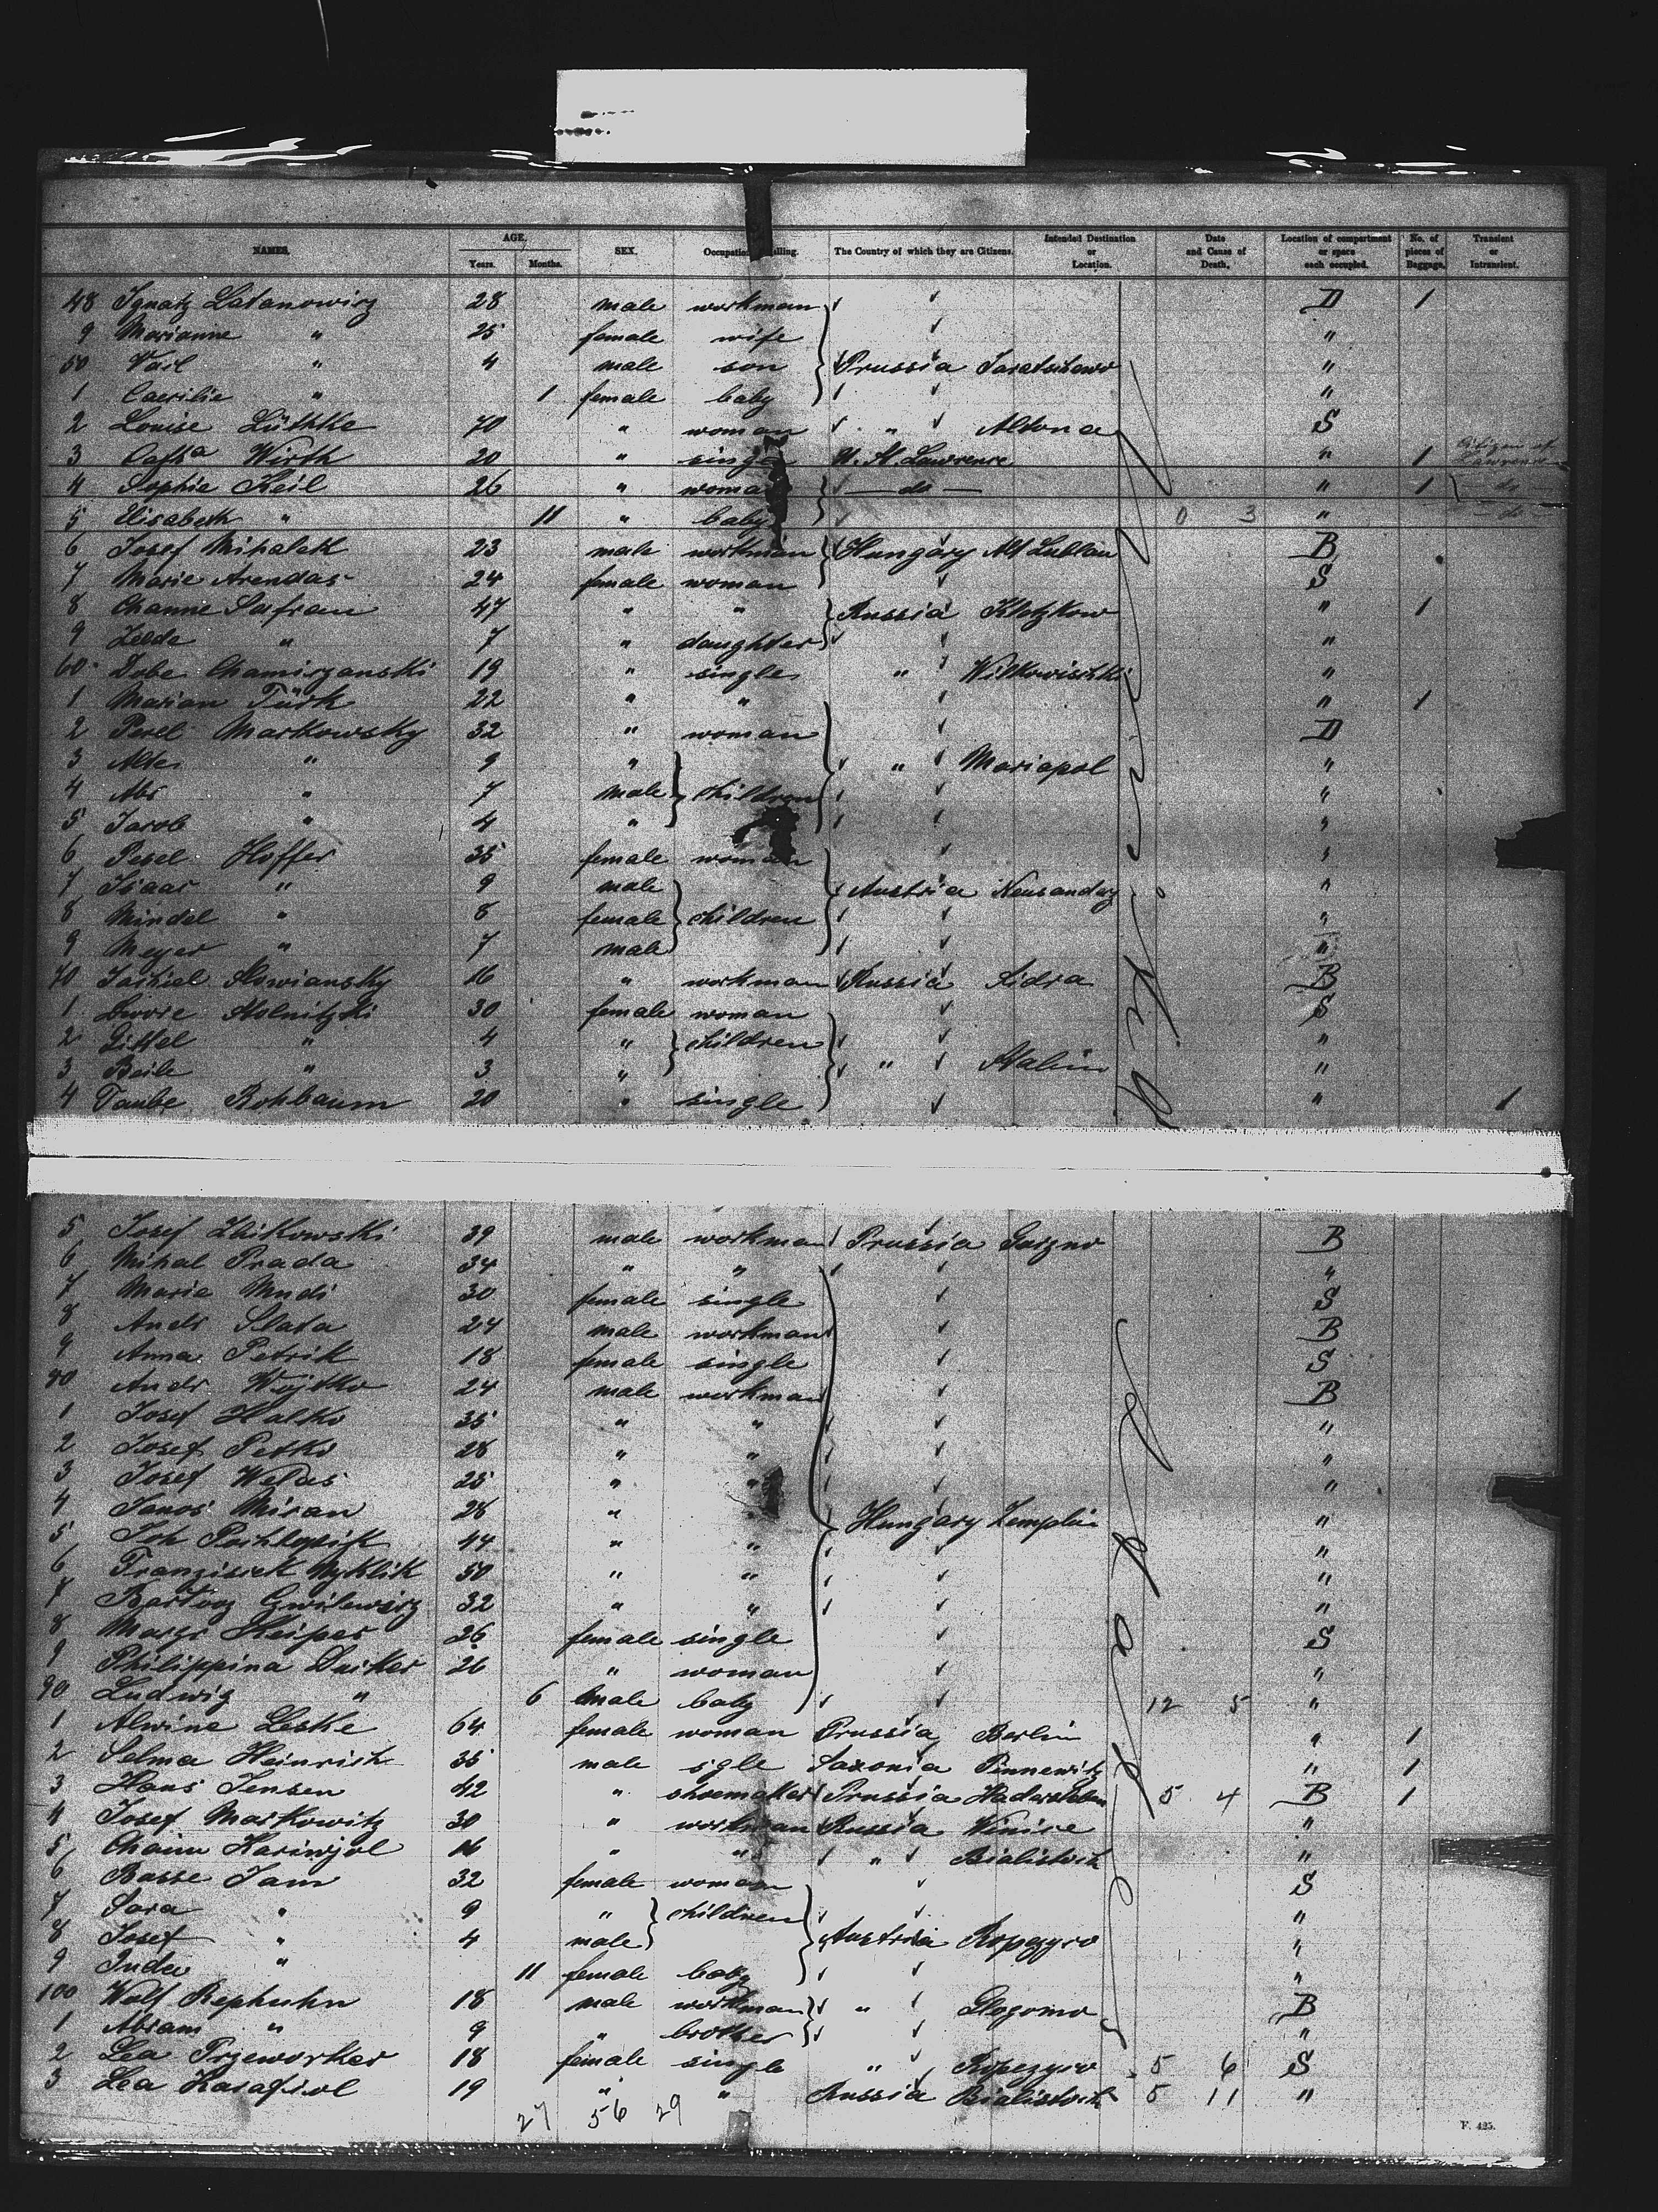 NAMES. AGE. Years. Months. SEX. Occupation Calling. The Country of which they are Citizens. Intended Destination or Location. Date and Cause of Death. Location of compartment or space each occupied. No. of pieces of Baggage. Transient or Intransient.
48 Ignatz Latanowicz 28 male workman D 1
9 Marianne " 25 female wife "
50 " 4 male son Prussia "
1 Caecilie " 1 female baby "
2 Louise Lüthke 70 " woman " Altona S
3 Cath a Wirth 20 " single Lawrence " 1 Citizen of Lawrence
4 Sophie Keil 26 " woman — do — " 1 — do —
5 Elisabeth " 11 " baby 0 3 " — do
6 Josef Mihalek 23 male workman Hungary Alt Lublau B
7 Marie Arendas 24 female woman S
8 Channe Safran 47 " " Russia Klotzkow " 1
9 " 7 " daughter "
60 Dobe Chamirzanski 19 " single " Wilkowischki "
1 Marian Türk 22 " " " 1
2 Pesel Markowsky 32 " woman D
3 Alte " 9 " " Mariapol "
4 Abr " 7 male children "
5 Jacob " 4 " "
6 Pesel Hoffer 35 female woman "
7 Isaac " 9 male Austria Neusandez "
8 Mindel " 8 female children "
9 Meyer " 7 male "
70 Slowiansky 16 " workman Russia Sidra B
1 Dwore Stolnitzki 30 female woman S
2 Gittel " 4 " children "
3 Beile " 3 " " "
4 Taube Rohbaum 20 " single " 1
5 Josef 39 male workman Prussia B
6 Mihal Prada 34 " " "
7 Marie Mudi 30 female single S
8 Andr Slata 24 male workman B
9 Anna Petrik 18 female single S
80 Andr Wojtko 24 male workman B
1 Josef Halko 35 " " "
2 Josef Petko 28 " " "
3 Josef 25 " " "
4 Janos Misan 28 " " Hungary Zemplin "
5 Joh 44 " " "
6 Franzisek Myklik 50 " " "
7 32 " " "
8 Margr Keiper 26 female single S
9 Philippina Duiker 26 " woman "
90 Ludwig " 6 male baby 12 5 "
1 Alwine Leske 64 female woman Prussia Berlin " 1
2 Selma Heinrich 35 male sgle Saxonia Pennewitz " 1
3 Hans Jensen 42 " shoemaker Prussia Hadersleben 5 4 B 1
4 Josef Markowitz 30 " workman Russia "
5 Chaim 16 " " " Bialistock "
6 Basse Jam 32 female woman S
7 Sara " 9 " children "
8 Josef " 4 male Austria Ropczyce "
9 " 11 female baby "
100 Wolf Rephuhn 18 male workman " B
1 Abram " 9 " brother "
2 Lea Przeworker 18 female single " Ropczyce 5 6 S
3 Lea 19 " " Russia Bialistock 5 11 "
27 56 29
F. 425.